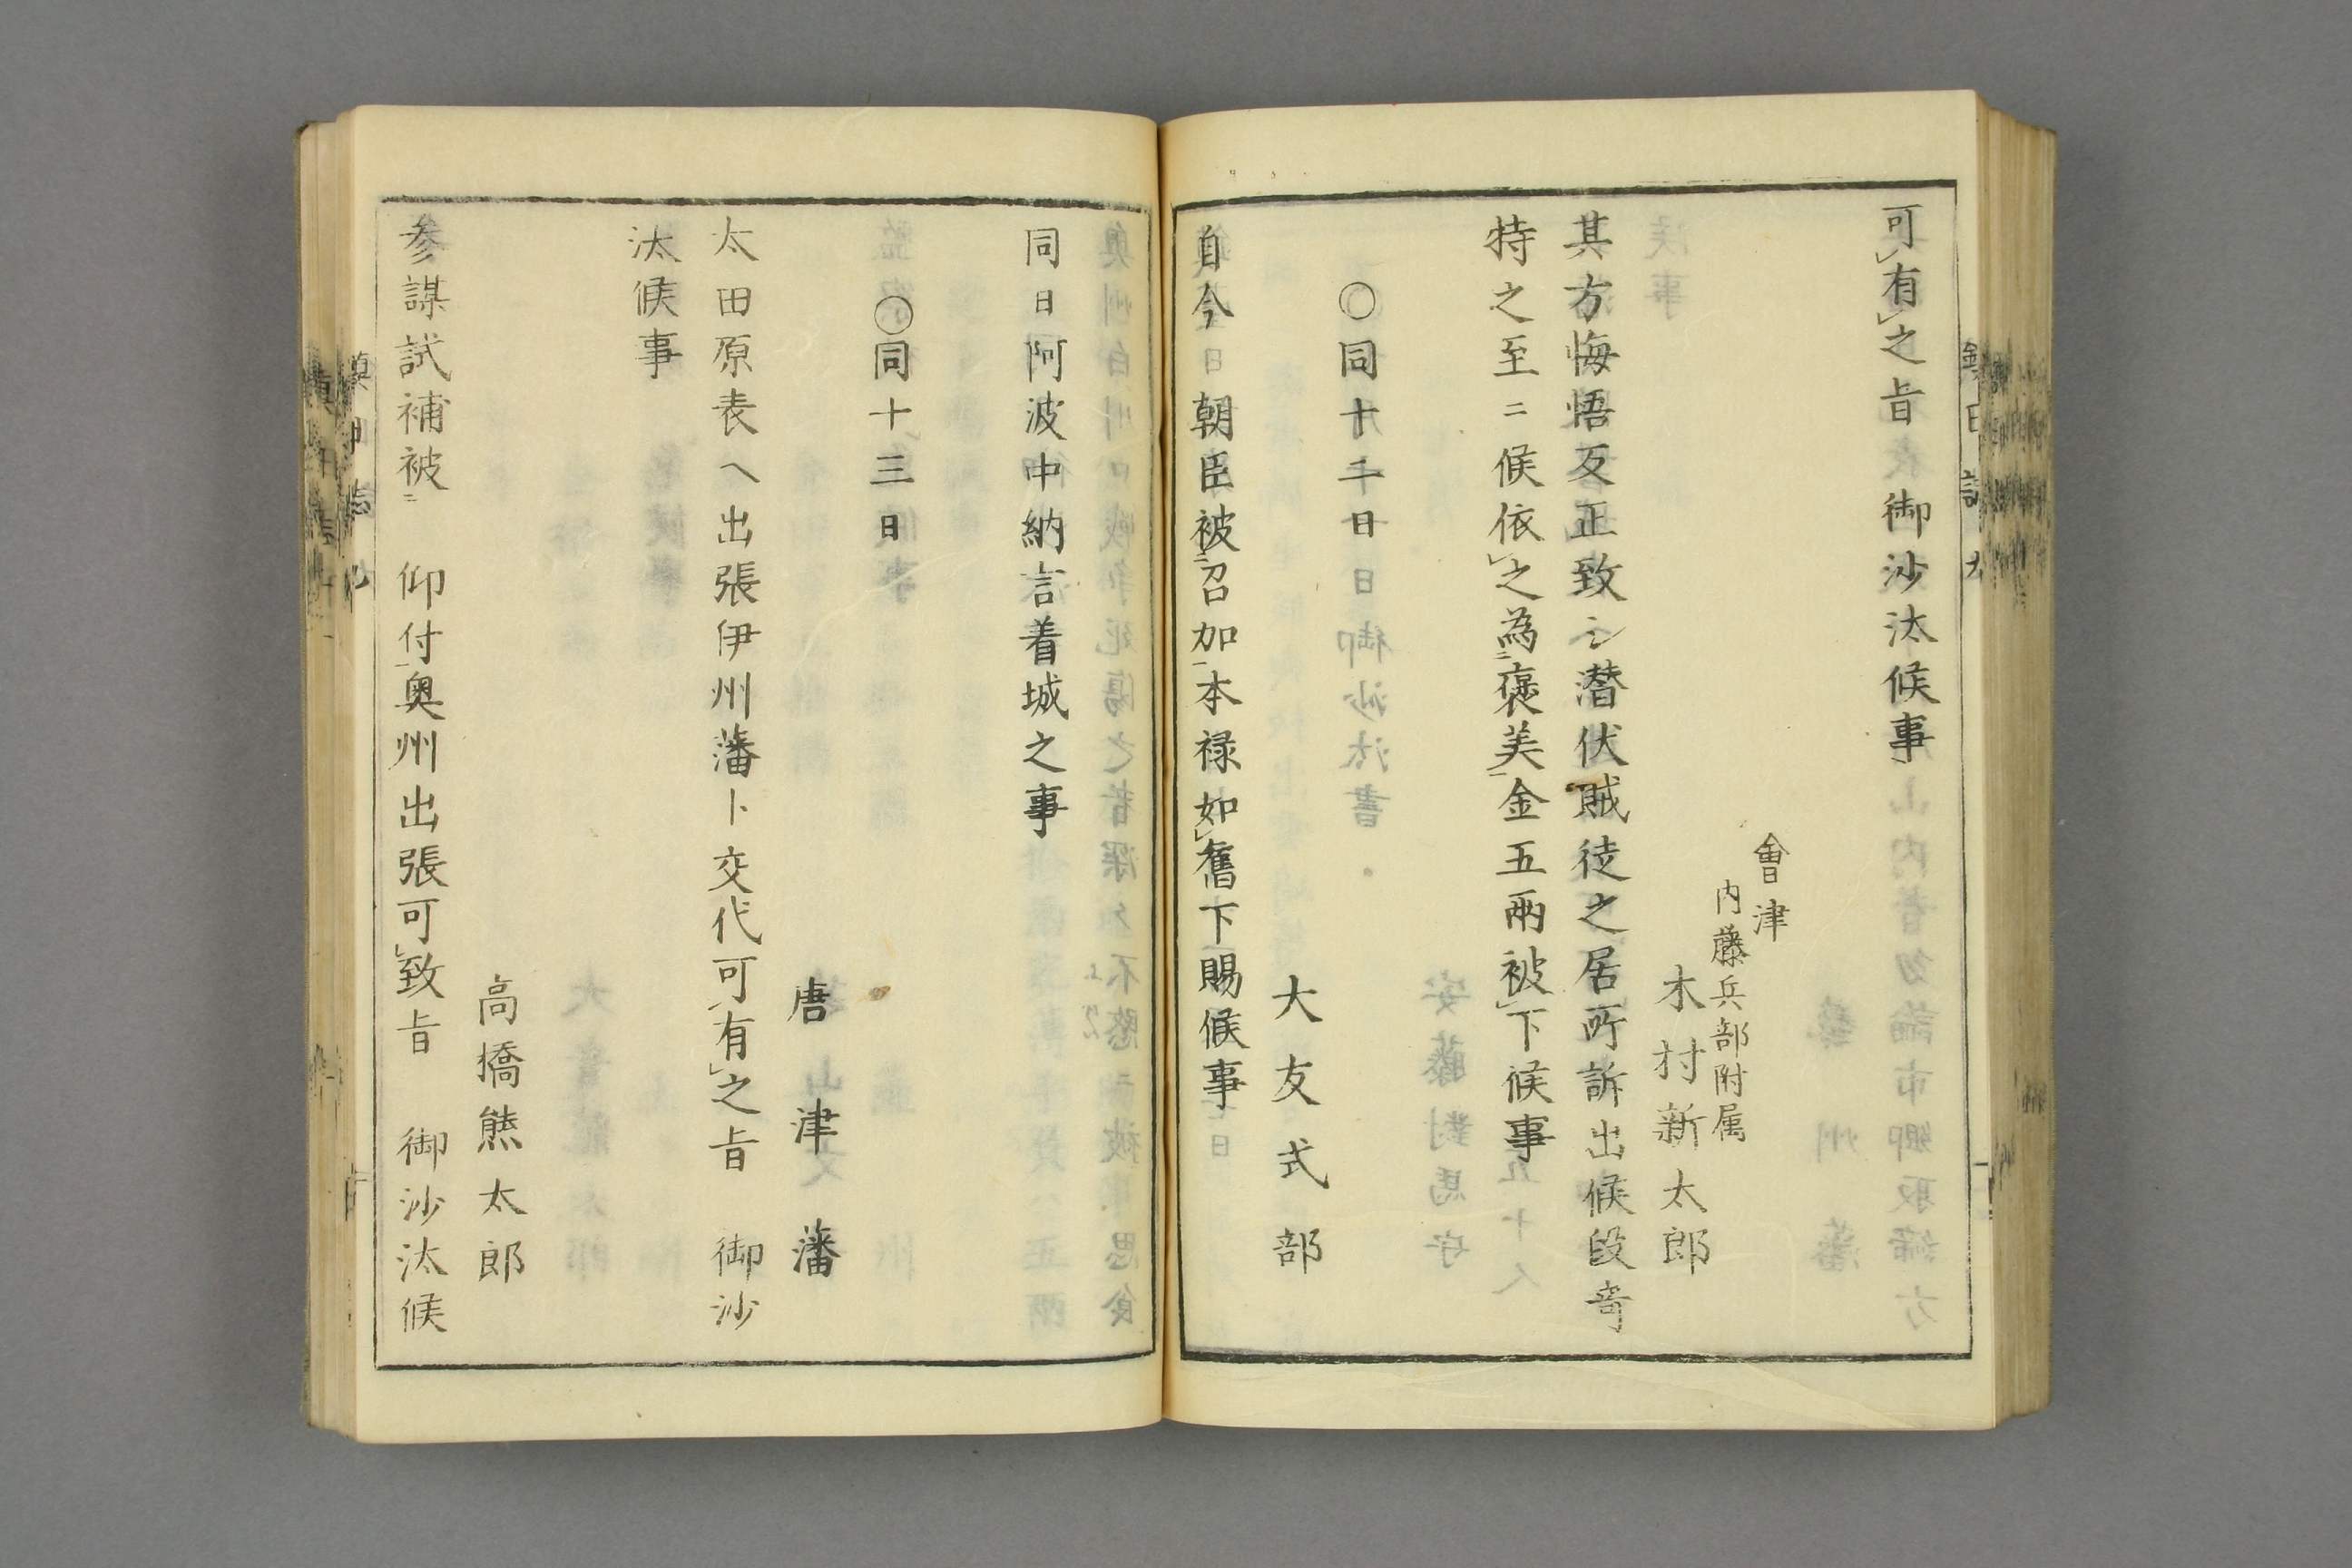 可有之旨　御沙汰候事
會津
内藤兵部附属
木村新太郎
其方悔悟反正致シ潜伏賊徒之居所訴出候段奇
特之至ニ候依之為褒美金五兩被下候事
〇同十二日
大友式部
自今　朝臣被召加本禄如舊下賜候事
同日阿波中納言着城之事
〇同十三日
唐津藩
太田原表ヘ出張伊州藩ト交代可有之旨　御沙
汰候事
高橋熊太郎
参謀試補被　仰付奥州出張可致旨　御沙汰候